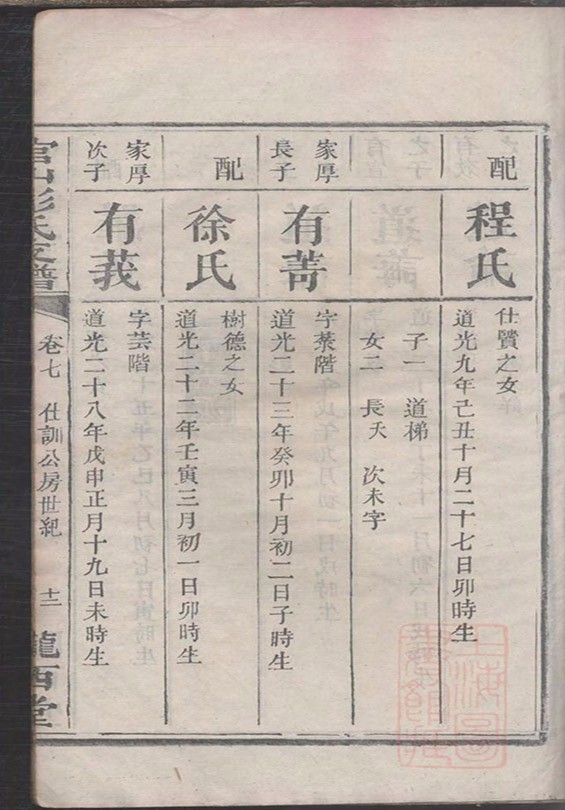 配
程氏
仕贤之女
道光九年己丑十月二十七日卯時生
子一 道梯
女二 長夭 次未字
家厚
長子
有蒈
字葉階
道光二十三年癸卯十月初二日子時生
配
徐氏
樹德之女
道光二十二年壬寅三月初一日卯時生
家厚
次子
有莪
字芸階
道光二十八年戊申正月十九日未時生
彭氏支譜
卷七 仕訓公房世紀 十二
隴西堂
上海圖